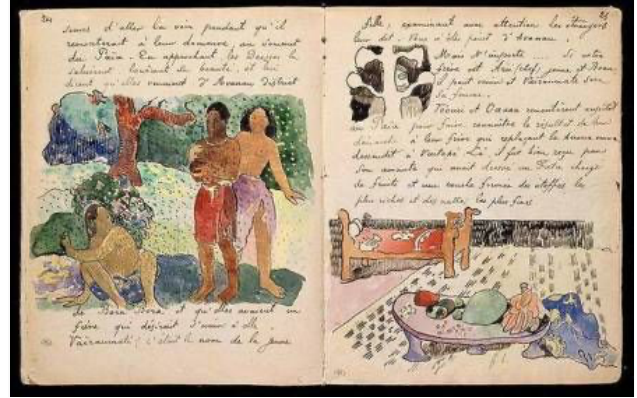 soeurs d'aller la voir pendant qu'il
remonterait à leur demeure, au sommet
du Païa. En approchant les Déesses la
saluèrent louèrent sa beauté, et lui
dirent qu'elles venaient d'Avanau district
de Bora Bora, et qu'elles avaient un
frère qui désirait s'unir à elle.
Vaïraumati (c'était le nom de la jeune
fille, examinant avec attention les étrangers
leur dit - Vous n'êtes point d'Avanau.
Mais N'importe .... Si votre
frère est Arii (chef) jeune, et Beau
il peut venir et Vaïraumati sera
sa femme.
Téouri et Oaaoa remontèrent aussitôt
au Païa pour faire connaître le résultat de leur
démarche à leur frère qui replaçant
descendit à Vaïtapé. Là, il fut bien reçu
son amante qui avait dressé un Fata chargé
de fruits et une couche formée des étoffes les
plus riches et des nattes les plus fines